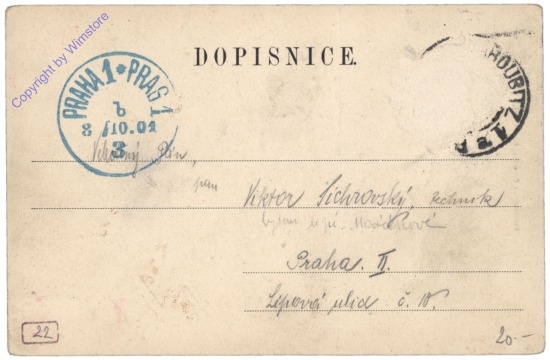 Copyright by Wimstore
DOPISNICE.
PRAHA 1 * PRAG 1
b
8 /10.01
3
ROUBITZ
pan
Viktor Sichrovský, technik
bytem u pí.
Praha. II.
Lípová ulice č. 18.
22
20.-